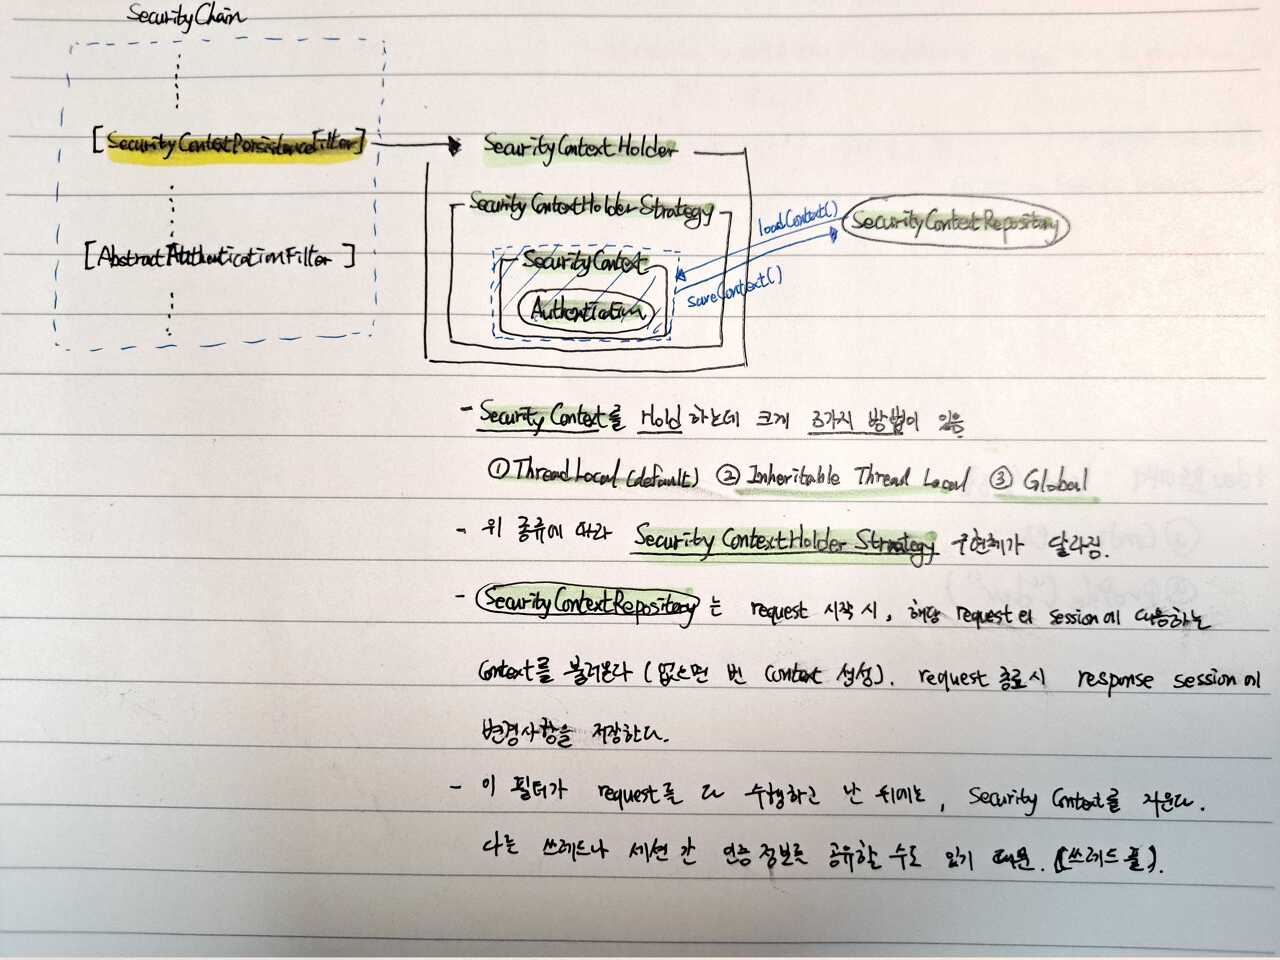 SecurityChain
[SecurityContextPersistenceFilter]
SecurityContextHolder
SecurityContextHolderStrategy
loadContext()
SecurityContextRepository
[AbstractAuthenticationFilter]
SecurityContext
saveContext()
Authentication
- Security Context를 Hold 하는데 크게 3가지 방법이 있음
① ThreadLocal (default) ② Inheritable Thread Local ③ Global
- 위 종류에 따라 Security ContextHolder Strategy 구현체가 달라짐.
- SecurityContextRepository 는 request 시작 시, 해당 request의 session에 대응하는
Context를 불러온다 (없으면 빈 Context 생성). request 종료시 response session에
변경사항을 저장한다.
- 이 필터가 request를 다 수행하고 난 뒤에는, Security Context를 지운다.
다른 쓰레드나 세션 간 인증 정보를 공유할 수도 있기 때문. (쓰레드 풀).